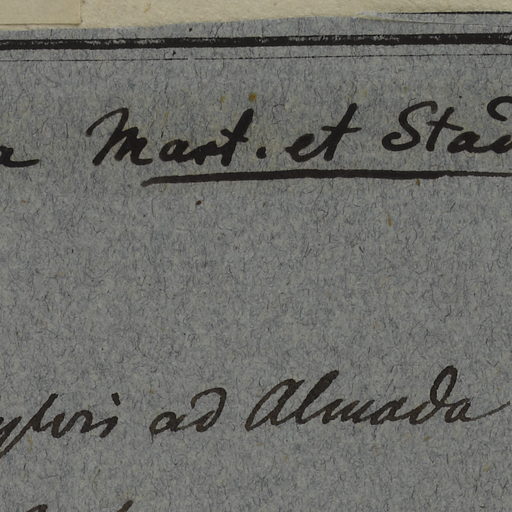 a Mart. et Stad
sylvis ad Almada